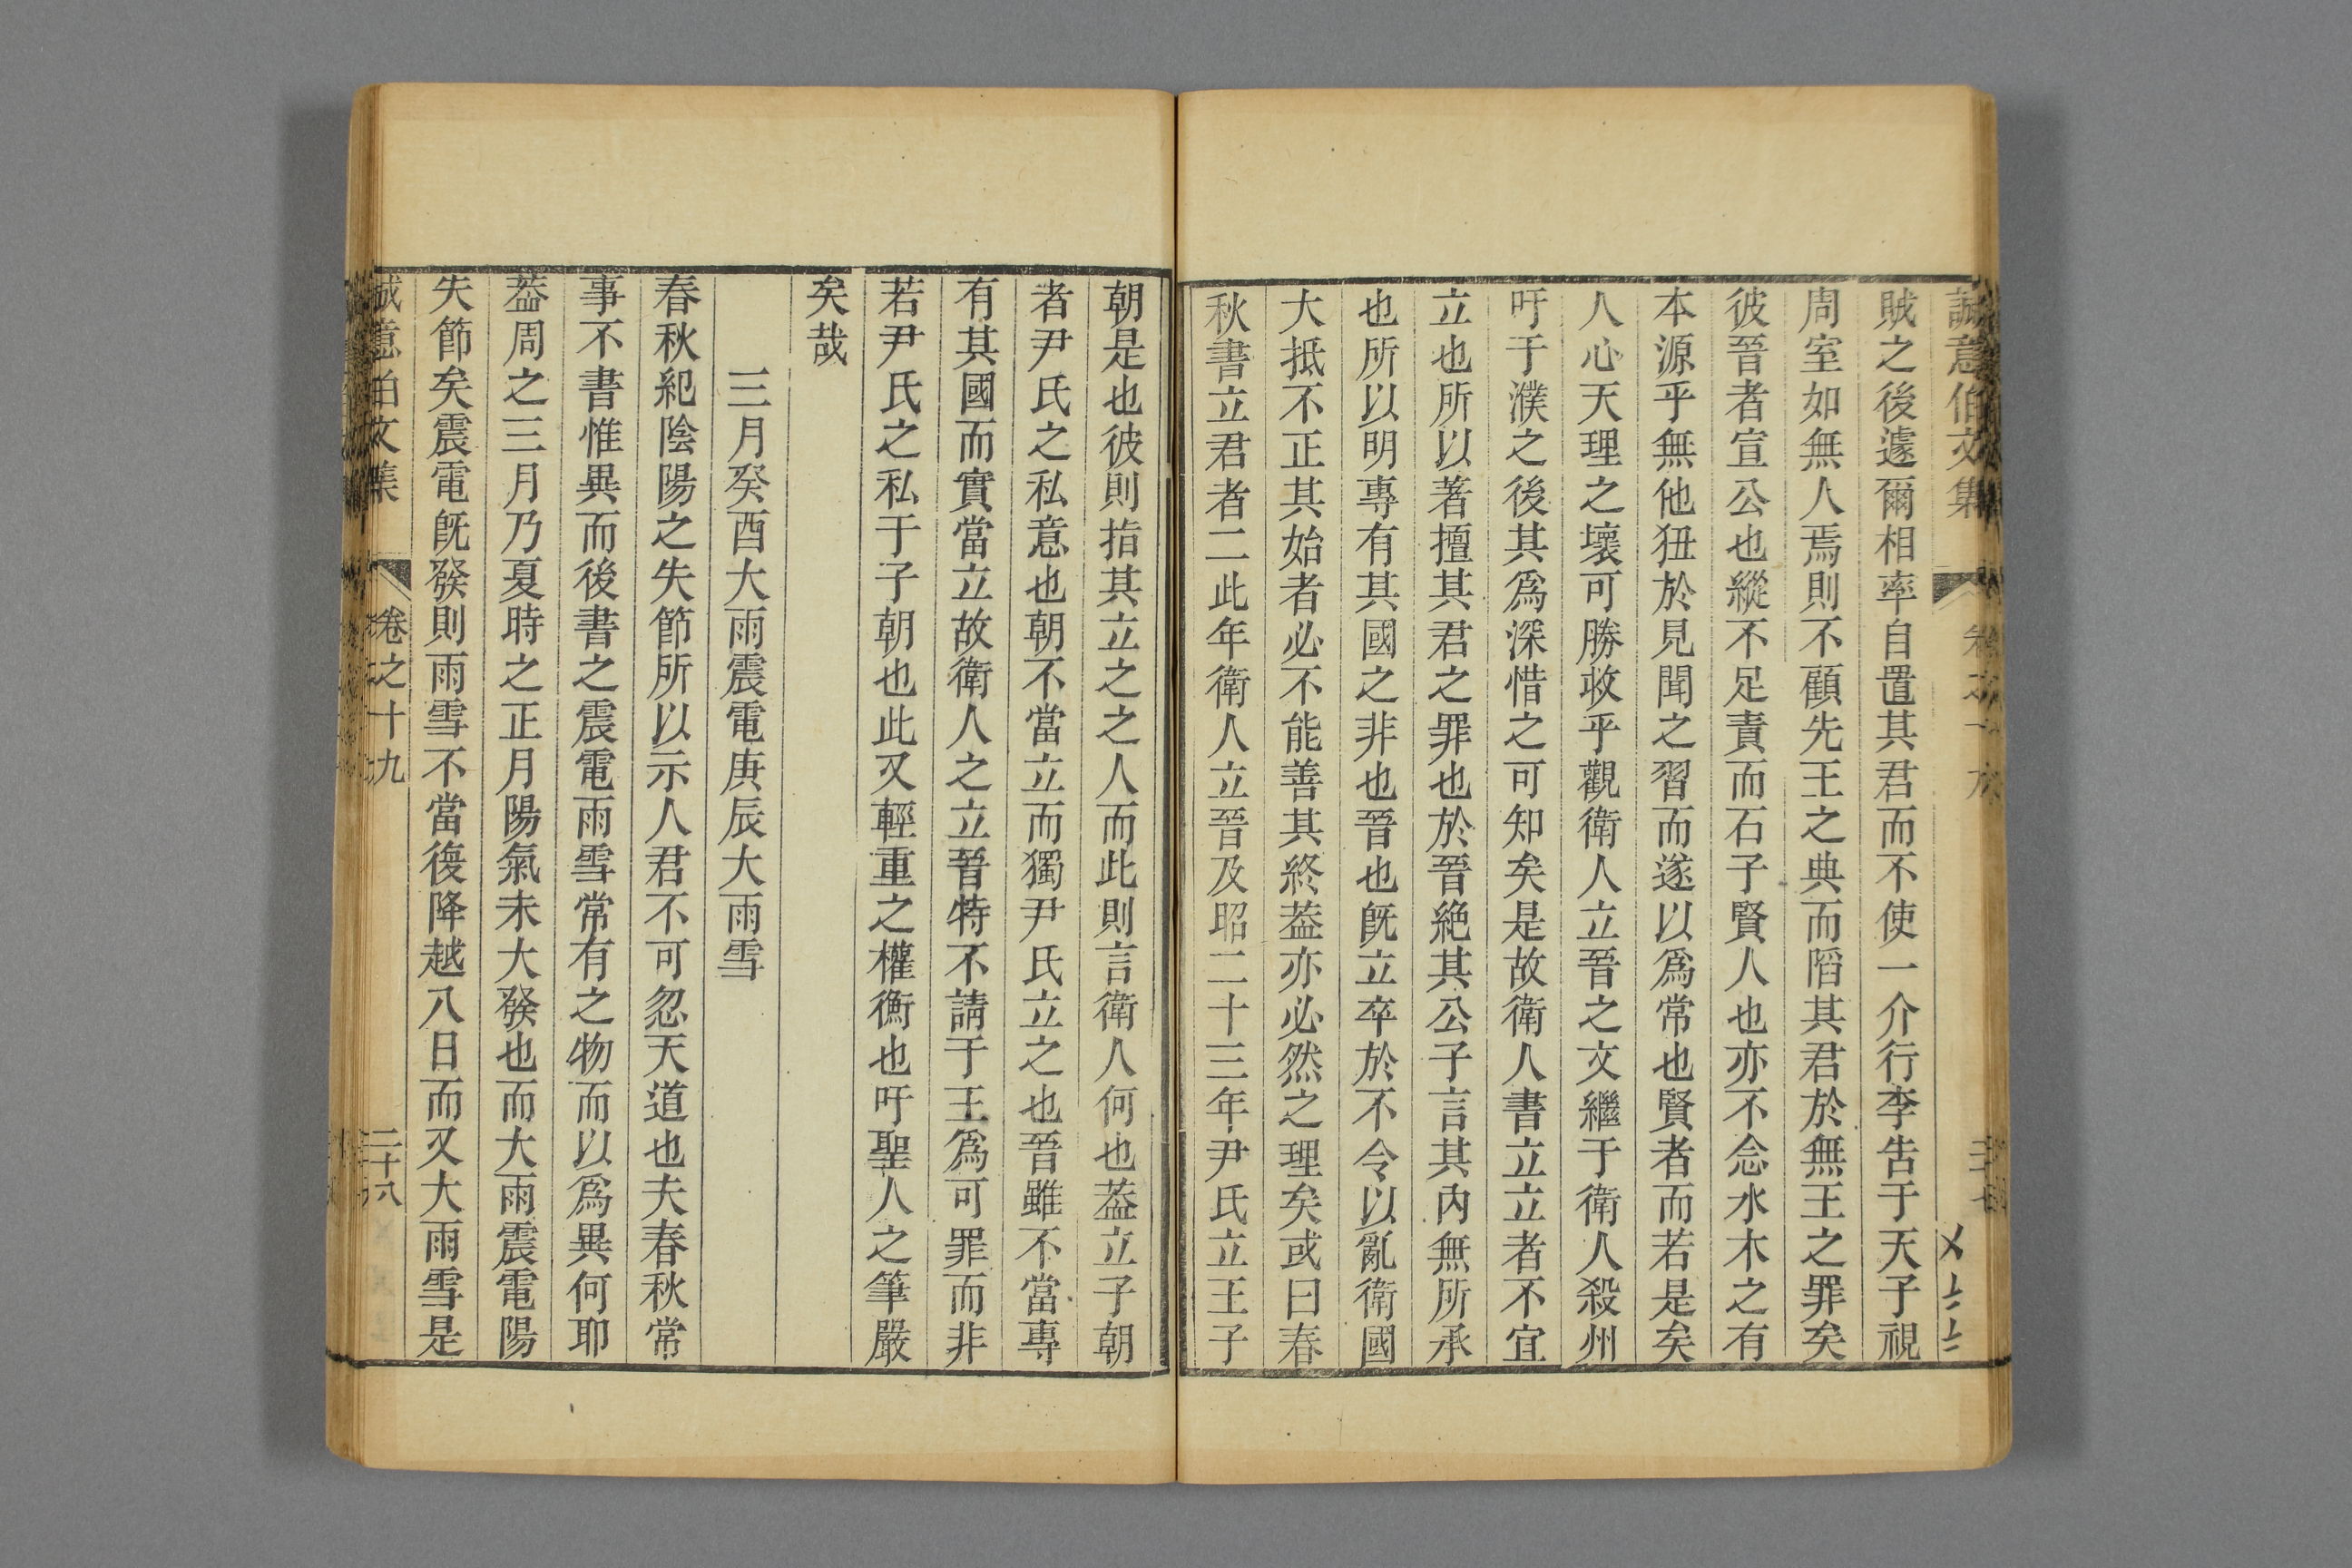 誠意伯文集
賊之後遽爾相率自置其君而不使一介行李告于天子視
周室如無人焉則不顧先王之典而䧟其君於無王之罪矣
彼晉者宣公也縱不足責而石子賢人也亦不念水木之有
本源乎無他狃於見聞之習而遂以爲常也賢者而若是矣
人心天理之壞可勝收乎觀衛人立晉之文繼于衛人殺州
吁于濮之後其爲深惜之可知矣是故衛人書立立者不宜
立也所以著擅其君之罪也於晉絶其公子言其內無所承
也所以明專有其國之非也晉也旣立卒於不令以亂衛國
大抵不正其始者必不能善其終葢亦必然之理矣或曰春
秋書立君者二此年衛人立晉及昭二十三年尹氏立王子
朝是也彼則指其立之之人而此則言衛人何也葢立子朝
者尹氏之私意也朝不當立而獨尹氏立之也晉雖不當專
有其國而實當立故衛人之立晉特不請于王爲可罪而非
若尹氏之私于子朝也此又輕重之權衡也吁聖人之筆嚴
矣哉
三月癸酉大雨震電庚辰大雨雪
春秋紀陰陽之失節所以示人君不可忽天道也夫春秋常
事不書惟異而後書之震電雨雪常有之物而以爲異何耶
葢周之三月乃夏時之正月陽氣未大發也而大雨震電陽
失節矣震電旣發則雨雪不當復降越八日而又大雨雪是
誠意伯文集 卷之十九 二十八